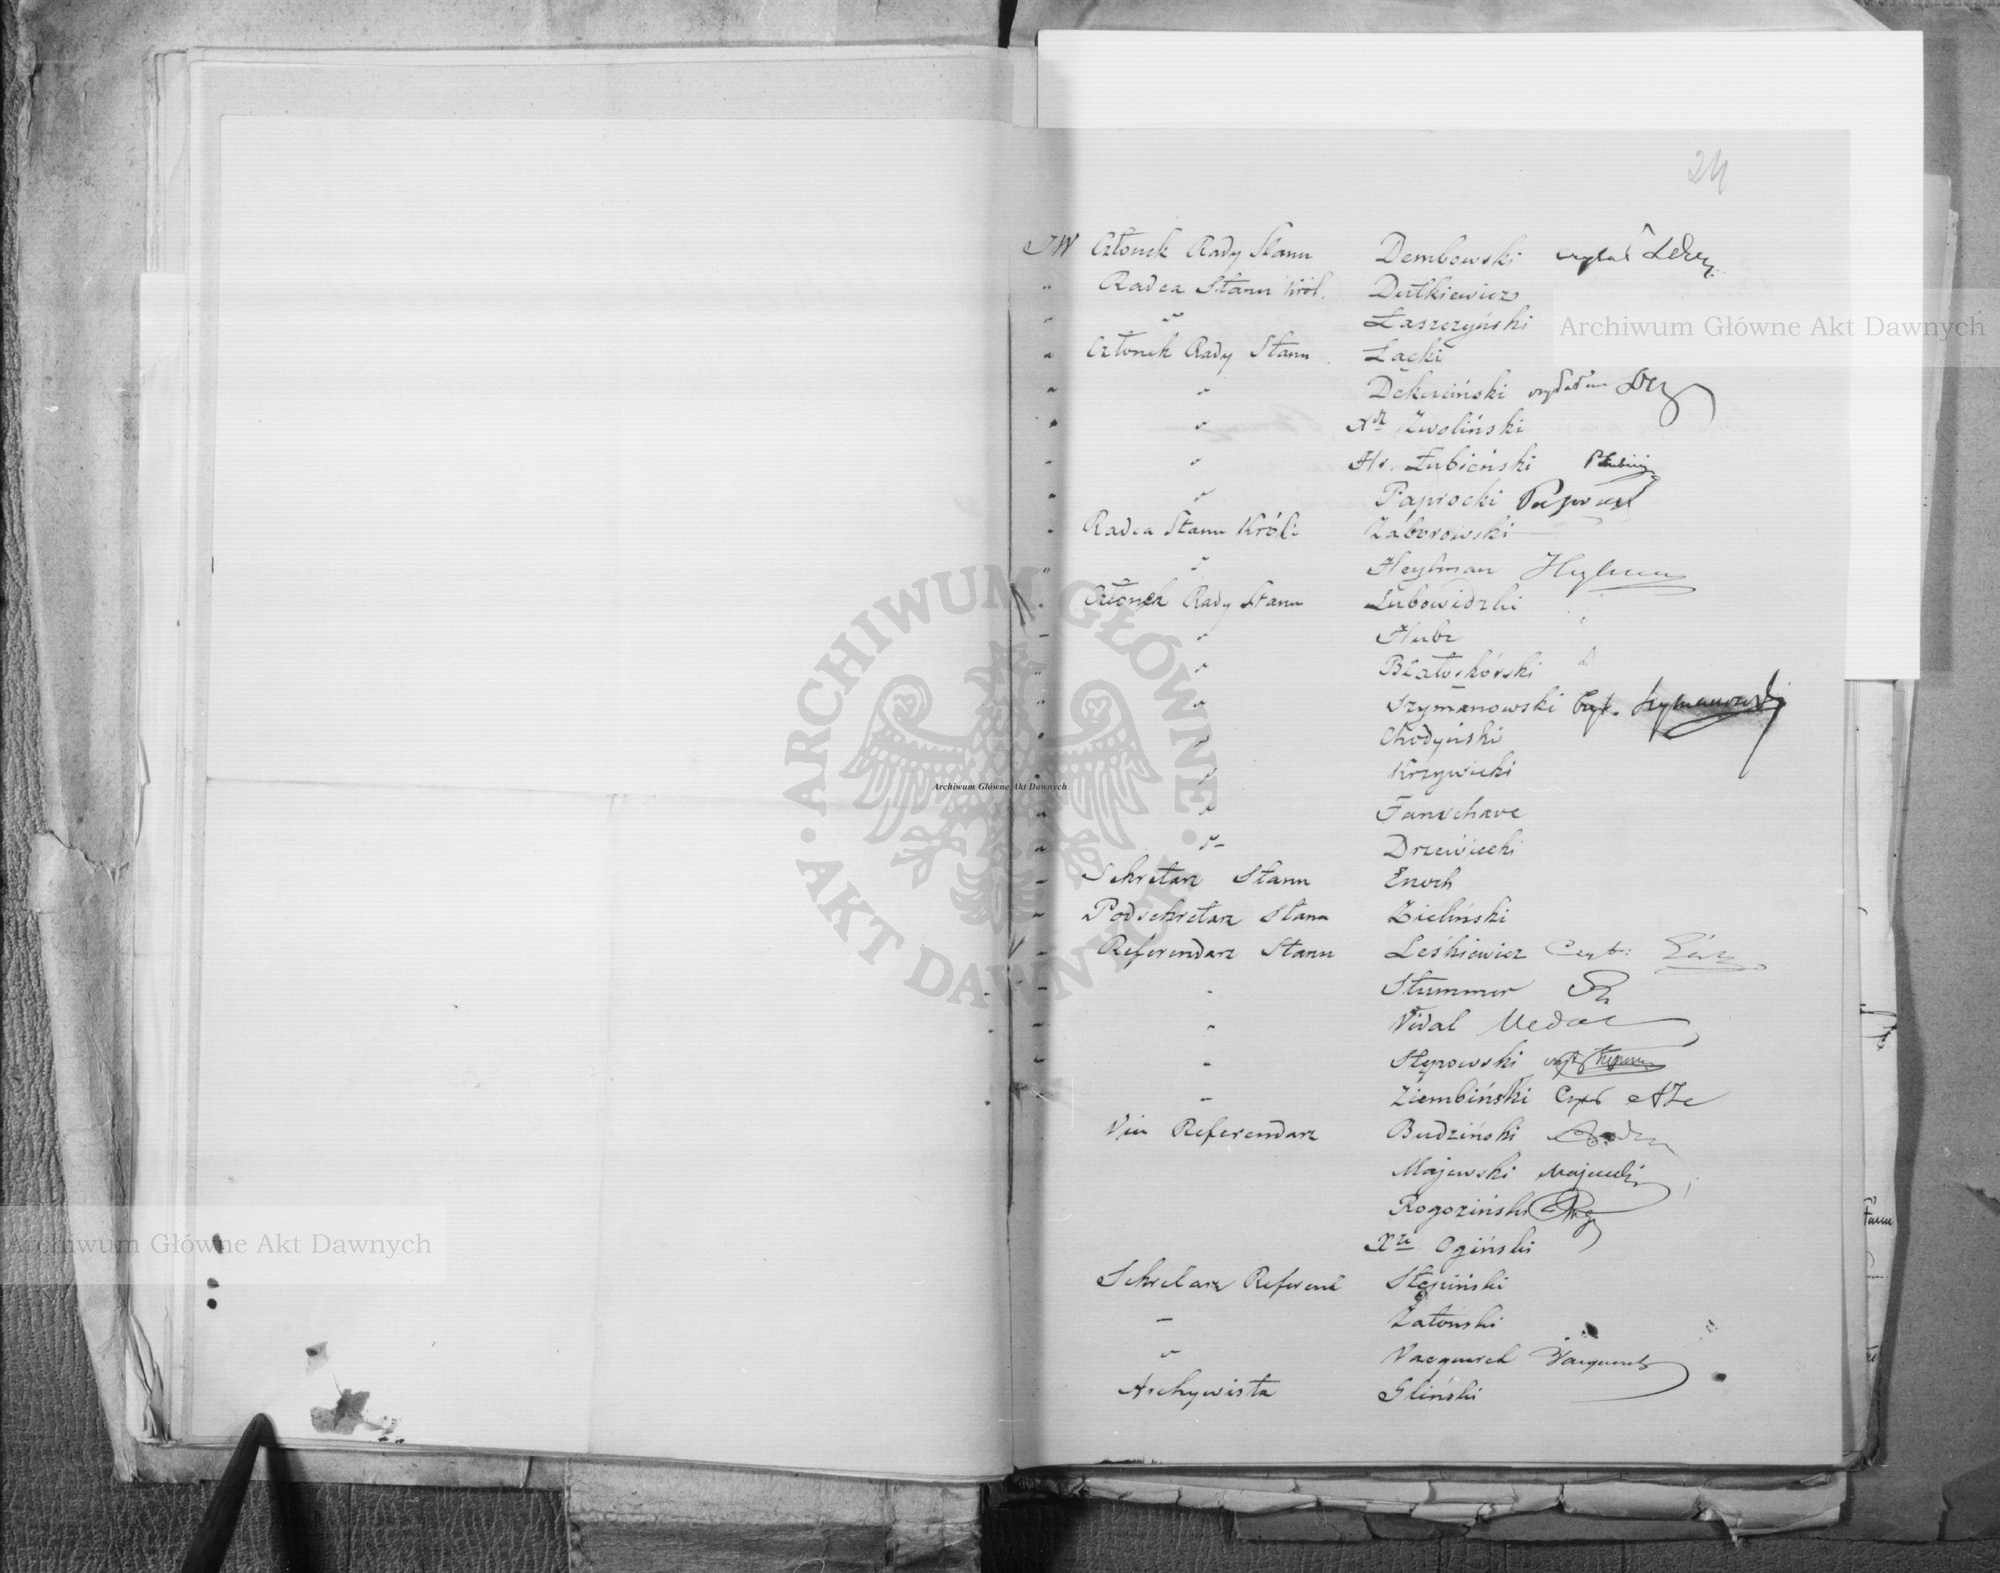 24
JW Członek Rady Stanu Dembowski czytał
" Radca Stanu Król. Dutkiewicz
" " Łaszczyński
" Członek Rady Stanu Łącki
" " Dekuciński czytałem
" " Xdz Zwoliński
" " Hr. Łubieński Płubieński
" " Paprocki Paprocki
" Radca Stanu Król: Zaborowski
" " Heylman Heylman
" Członek Rady Stanu Lubowidzki
" " Hube
" " Białoskórski
" " Szymanowski Czyt. Szymanowski
" " Chodyński
" " Krzywicki
" " Fanschave
" " Drzewiecki
" Sekretarz Stanu Enoch
" Podsekretarz Stanu Zieliński
" Referendarz Stanu Leśkiewicz Czyt:
" " Stummer
" " Vidal Vidal
" " Stypowski
" " Ziembiński Czyt AZe
Vice Referendarz Budziński
Majewski Majewski
Rogoziński
Xże Ogiński
Sekretarz Referent Stępiński
" Zatoński
" Vacqueret Vacqueret
Archywista Gliński
Archiwum Główne Akt Dawnych
ARCHIWUM GŁÓWNE AKT DAWNYCH
Archiwum Główne Akt Dawnych
Archiwum Główne Akt Dawnych